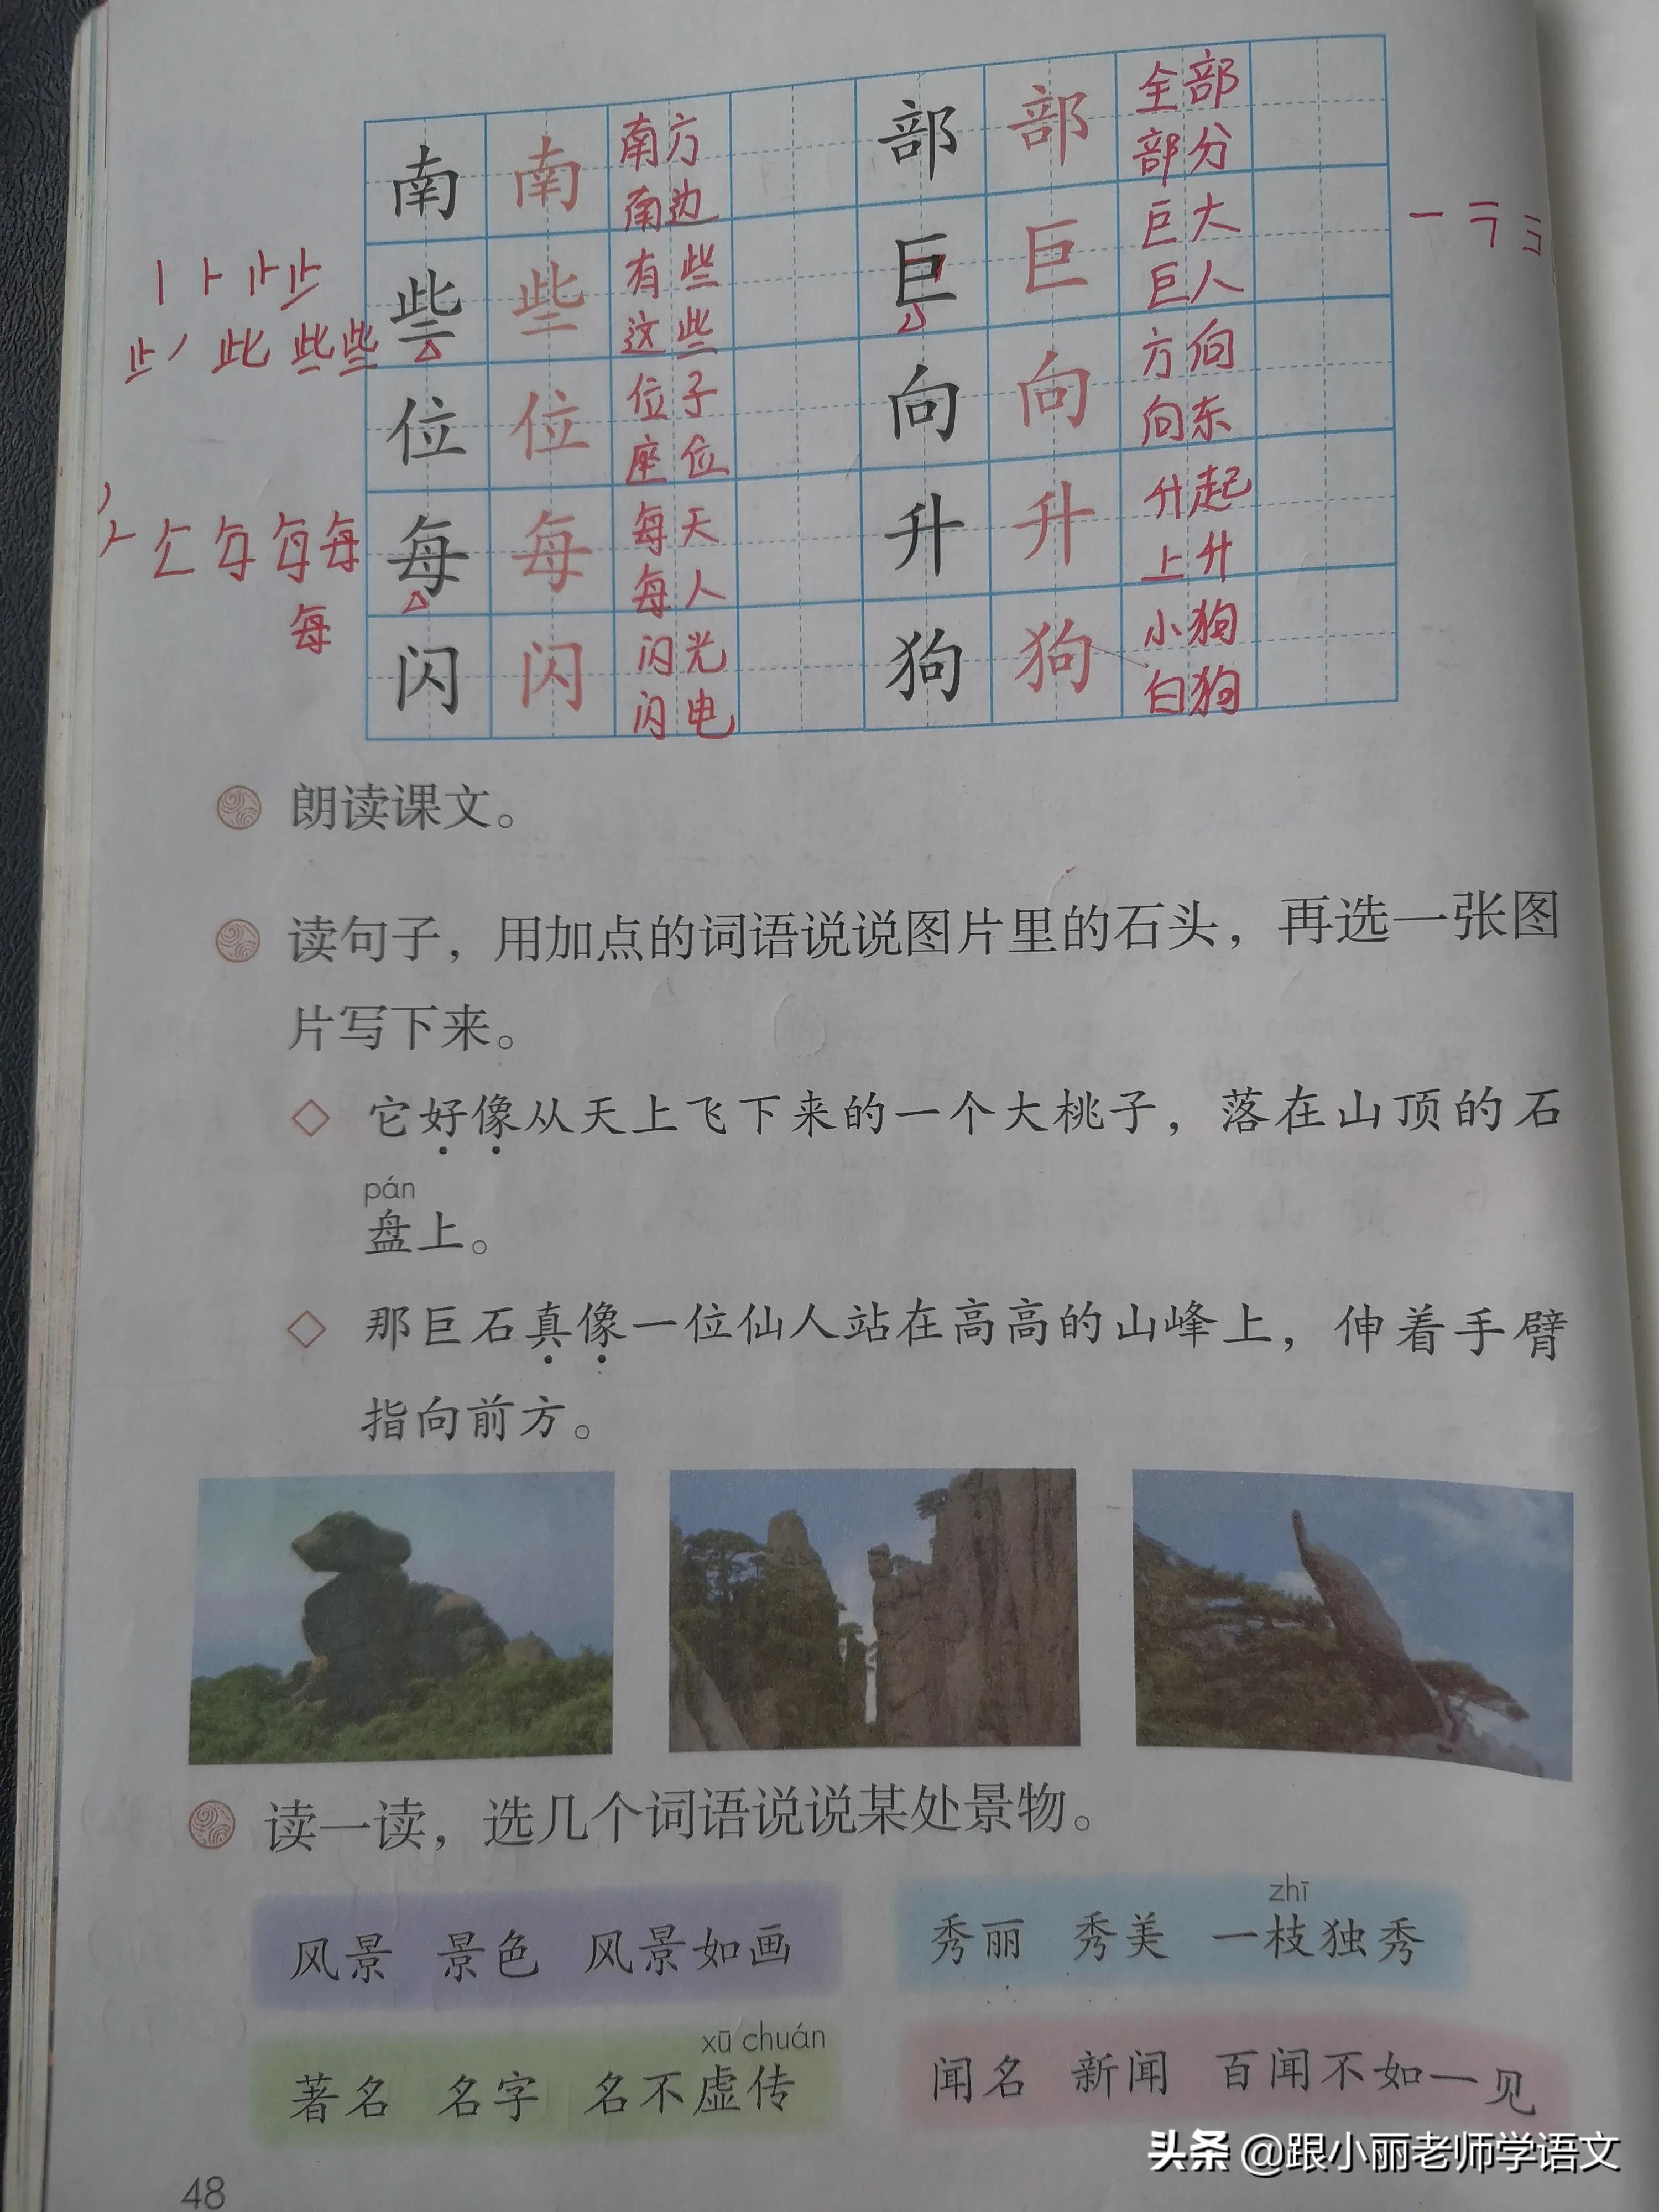 南 南 南方 部 部 全部
南边 部分
些 些 有些 巨 巨 巨大
这些 巨人
位 位 位子 向 向 方向
座位 向东
每 每 每天 升 升 升起
每人 上升
闪 闪 闪光 狗 狗 小狗
闪电 白狗
朗读课文。
读句子，用加点的词语说说图片里的石头，再选一张图
片写下来。
它好像从天上飞下来的一个大桃子，落在山顶的石
pán
盘上。
那巨石真像一位仙人站在高高的山峰上，伸着手臂
指向前方。
读一读，选几个词语说说某处景物。
zhī
风景 景色 风景如画 秀丽 秀美 一枝独秀
xū chuán
著名 名字 名不虚传 闻名 新闻 百闻不如一见
头条 @跟小丽老师学语文
48